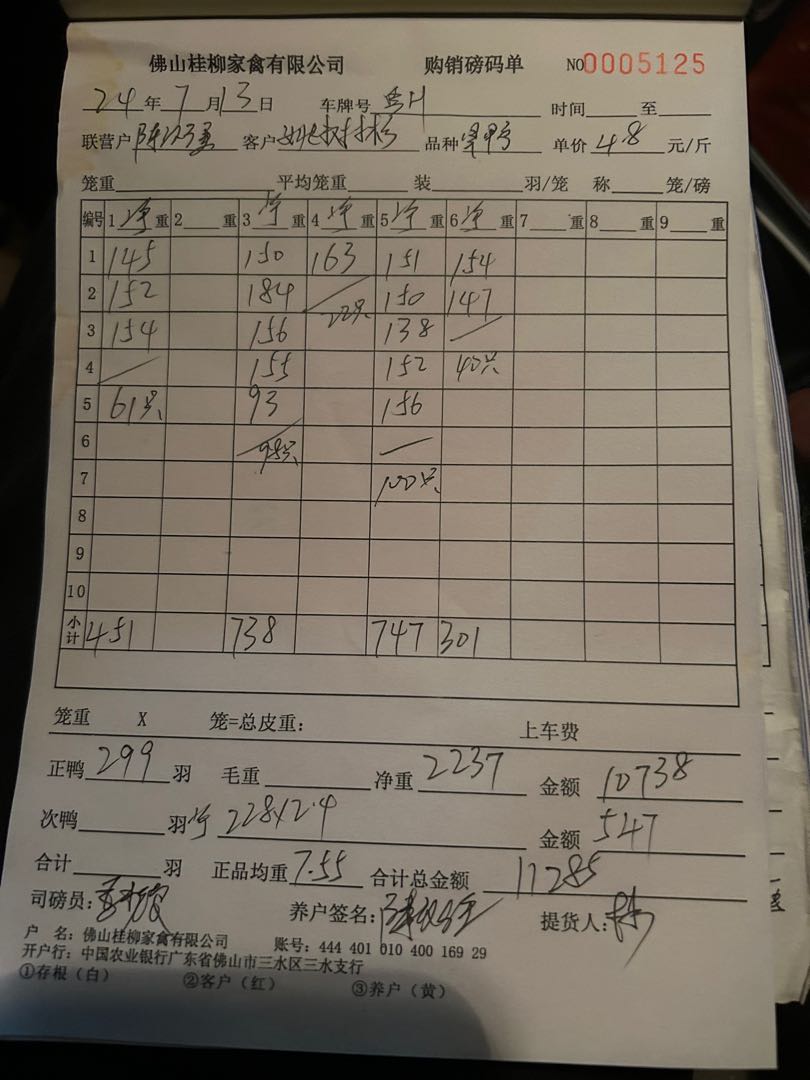 佛山桂柳家禽有限公司 购销磅码单 NO0005125
24年7月13日 车牌号 时间 至
联营户 客户 品种 单价4.8元/斤
笼重 平均笼重 装 羽/笼 称 笼/磅
编号 1净重 2 重 3净重 4净重 5净重 6净重 7 重 8 重 9 重
1 145 150 163 151 154
2 152 184 22只 150 147
3 154 156 138
4 155 152 40只
5 61只 93 156
6 98只
7 100只
8
9
10
小计 451 738 747 301
笼重 X 笼=总皮重： 上车费
正鸭299羽 毛重 净重2237 金额10738
次鸭 羽净228×2.4 金额547
合计 羽 正品均重7.55 合计总金额11285
司磅员： 养户签名： 提货人：
户 名：佛山桂柳家禽有限公司 账号：444 401 010 400 169 29
开户行：中国农业银行广东省佛山市三水区三水支行
①存根（白） ②客户（红） ③养户（黄）